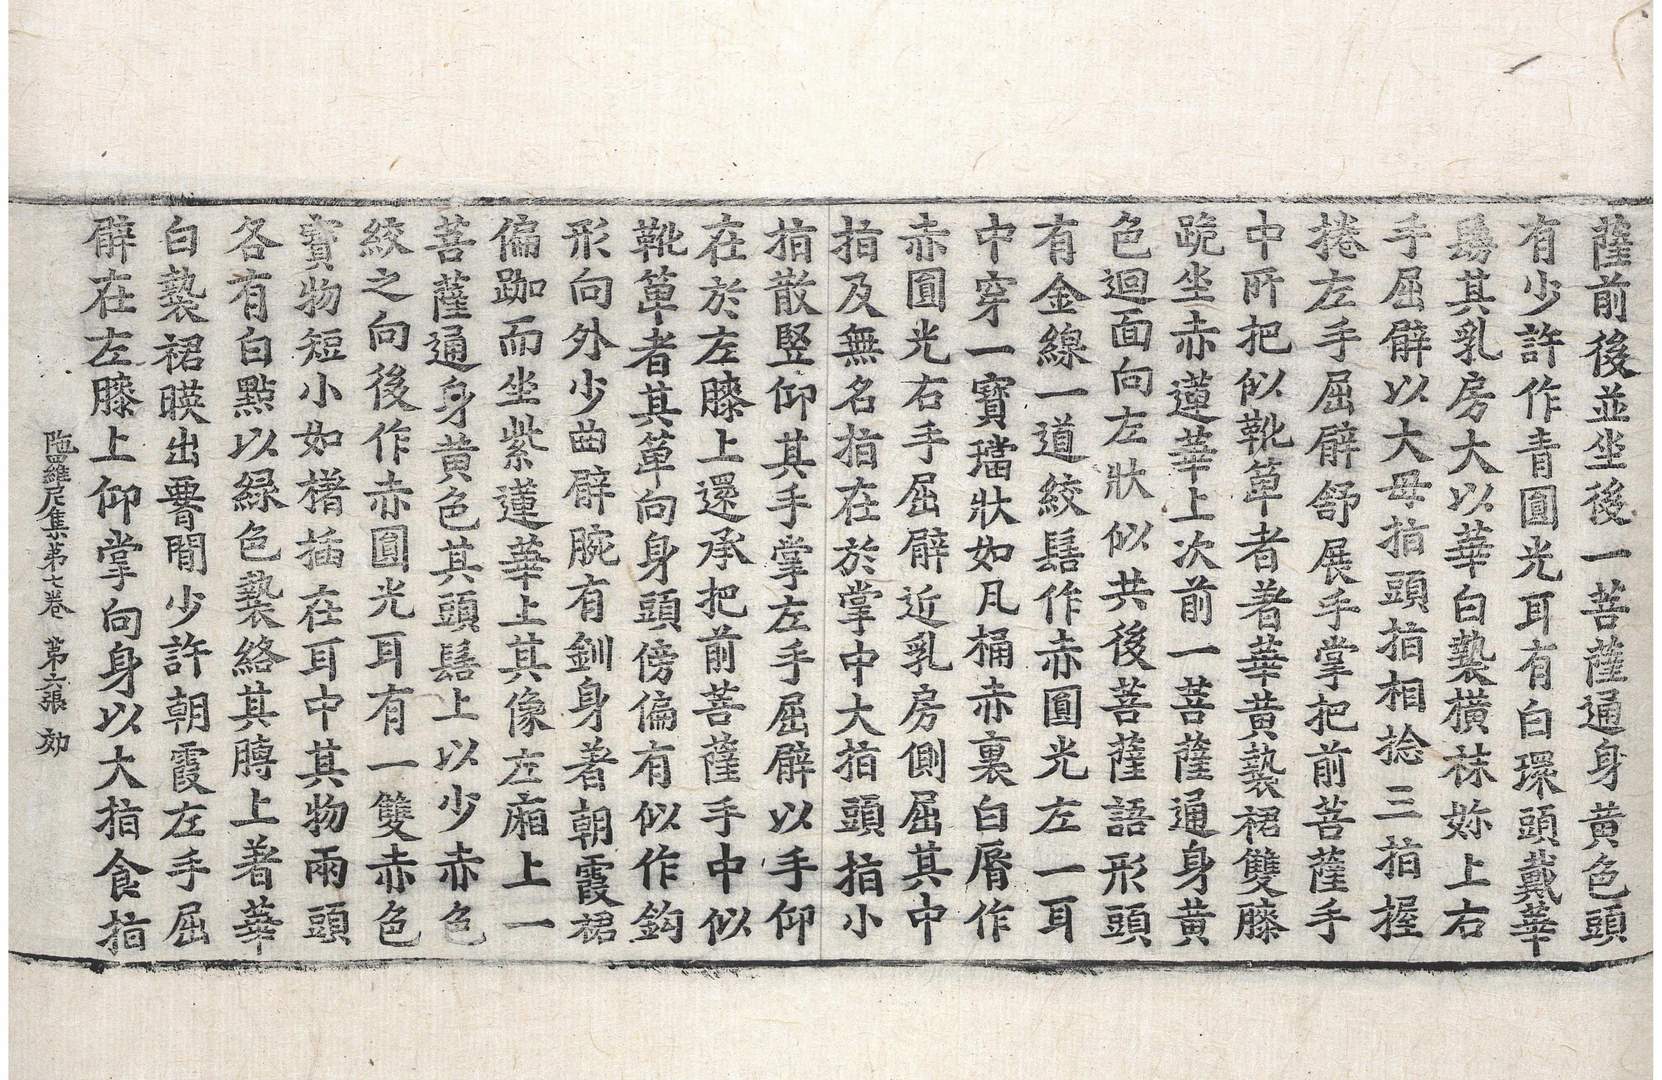 薩前後並坐後一菩薩通身黃色頭
有少許作青圓光耳有白環頭戴華
鬘其乳房大以華白褺橫袜妳上右
手屈臂以大母指頭指相捻三指握
捲左手屈臂舒展手掌把前菩薩手
中所把似靴箄者著華黃褺裙雙膝
跪坐赤蓮華上次前一菩薩通身黃
色迴面向左狀似共後菩薩語形頭
有金線一道絞髻作赤圓光左一耳
中穿一寶璫狀如凡桶赤裏白脣作
赤圓光右手屈臂近乳房側屈其中
指及無名指在於掌中大指頭指小
指散豎仰其手掌左手屈臂以手仰
在於左膝上還承把前菩薩手中似
靴箄者其箄向身頭傍偏有似作鈎
形向外少曲臂腕有釧身著朝霞裙
偏跏而坐紫蓮華上其像左廂上一
菩薩通身黃色其頭髻上以少赤色
絞之向後作赤圓光耳有一雙赤色
寶物短小如櫡插在耳中其物兩頭
各有白點以綠色褺絡其髆上著華
白褺裙暎出要間少許朝霞左手屈
臂在左膝上仰掌向身以大指食指
陁羅尼集第七卷 第六張 効